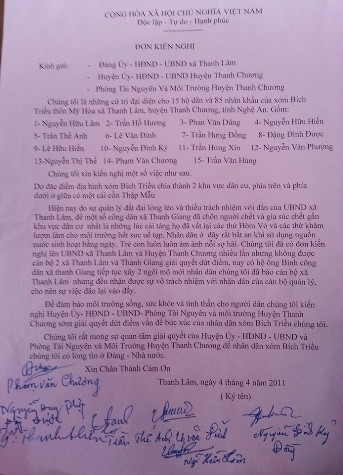 CỘNG HÒA XÃ HỘI CHỦ NGHĨA VIỆT NAM
Độc lập - Tự do - Hạnh phúc
ĐƠN KIẾN NGHỊ
Kính gửi: - Đảng Ủy - HĐND - UBND xã Thanh Lâm
- Huyện Ủy- HĐND - UBND Huyện Thanh Chương
- Phòng Tài Nguyên Và Môi Trường Huyện Thanh Chương
Chúng tôi là những cử tri đại diện cho 15 hộ dân và 85 nhân khẩu của xóm Bích
Triều thôn Mỹ Hòa xã Thanh Lâm, huyện Thanh Chương, tỉnh Nghệ An. Gồm:
1- Nguyễn Hữu Lâm 2- Trần Hồ Hương 3- Phan Văn Dũng 4- Nguyễn Hữu Hiền
5- Trần Thế Anh 6- Lê Văn Đình 7- Trần Hưng Đồng 8- Đặng Đình Được
9- Lê Hữu Hiền 10- Nguyễn Đình Kỳ 11- Trần Hưng Xin 12- Nguyễn Văn Phượng
13-Nguyễn Thị Thế 14- Phạm Văn Chương 15- Trần Văn Hùng
Chúng tôi xin kiến nghị một số việc như sau.
Do đặc điểm địa hình xóm Bích Triều chia thành 2 khu vực dân cư, phía trên và phía
dưới ở giữa có một cái cồn Thập Mẫu
Hiện nay do sự quản lý đất đai lỏng lẻo và thiếu trách nhiệm với dân của UBND xã
Thanh Lâm, để một số công dân xã Thanh Giang đã chôn người chết và gia súc chết gần
khu vực dân cư nhất là những lúc cải táng họ đã vất lại các thứ Hòm Vỏ và các thứ khâm
lượm làm cho môi trường hết sức uế tạp, Nhân dân ở đây rất bất an khi sử dụng nguồn
nước sinh hoạt hằng ngày. Trẻ con luôn luôn ám ảnh nỗi sợ hãi. Chúng tôi đã có đơn kiến
nghị lên UBND xã Thanh Lâm và Huyện Thanh Chương nhiều lần nhưng không được
cán bộ 2 xã Thanh Lâm và Thanh Giang giải quyết dứt điểm, nay có hộ ông Bính công
dân xã thanh Giang tiếp tục xây 2 ngôi mộ mới nhân dân chúng tôi đã báo cán bộ xã
Thanh Lâm nhưng đều nhận được sự vô trách nhiệm với nhân dân của cán bộ quản lý,
cho nên sự việc đâu lại vào đấy.
Để đảm bảo môi trường sống, sức khỏe và tinh thần cho người dân chúng tôi kiến
nghị Huyện Ủy- HĐND - UBND- Phòng Tài Nguyên và môi trường Huyện Thanh
Chương sớm giải quyết dứt điểm vấn đề bức xúc của nhân dân xóm Bích Triều chúng tôi.
Chúng tôi rất mong sự quan tâm giải quyết của Huyện Ủy - HĐND - UBND và
Phòng Tài Nguyên và Môi Trường Huyện Thanh Chương để nhân dân xóm Bích Triều
chúng tôi có lòng tin ở Đảng - Nhà nước.
Xin Chân Thành Cảm Ơn
Thanh Lâm, ngày 4 tháng 4 năm 2011
( Ký tên)
Phạm văn Chương